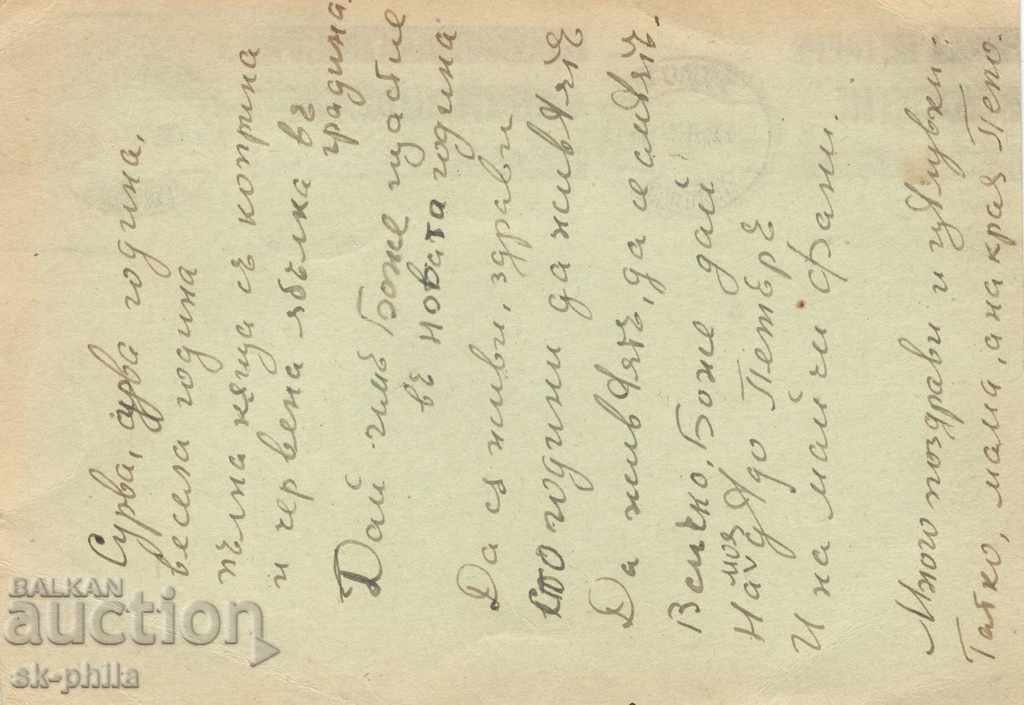 Сурва, сурва година,
весела година
пълна кѫща съ коприна
и червена ябълка въ
градина.
Дай имъ Боже щастие
въ новата година
Да сѫ живи, здрави
сто години да живѣятъ
Да живѣятъ, да се смѣятъ.
Всичко, Боже дай
На моя дѣдо Петъръ
И на майчи Фани.
Много поздрави и цѣлувки:
Татко, мама, а на края Пепо.
BALKAN
auction
sk-phila